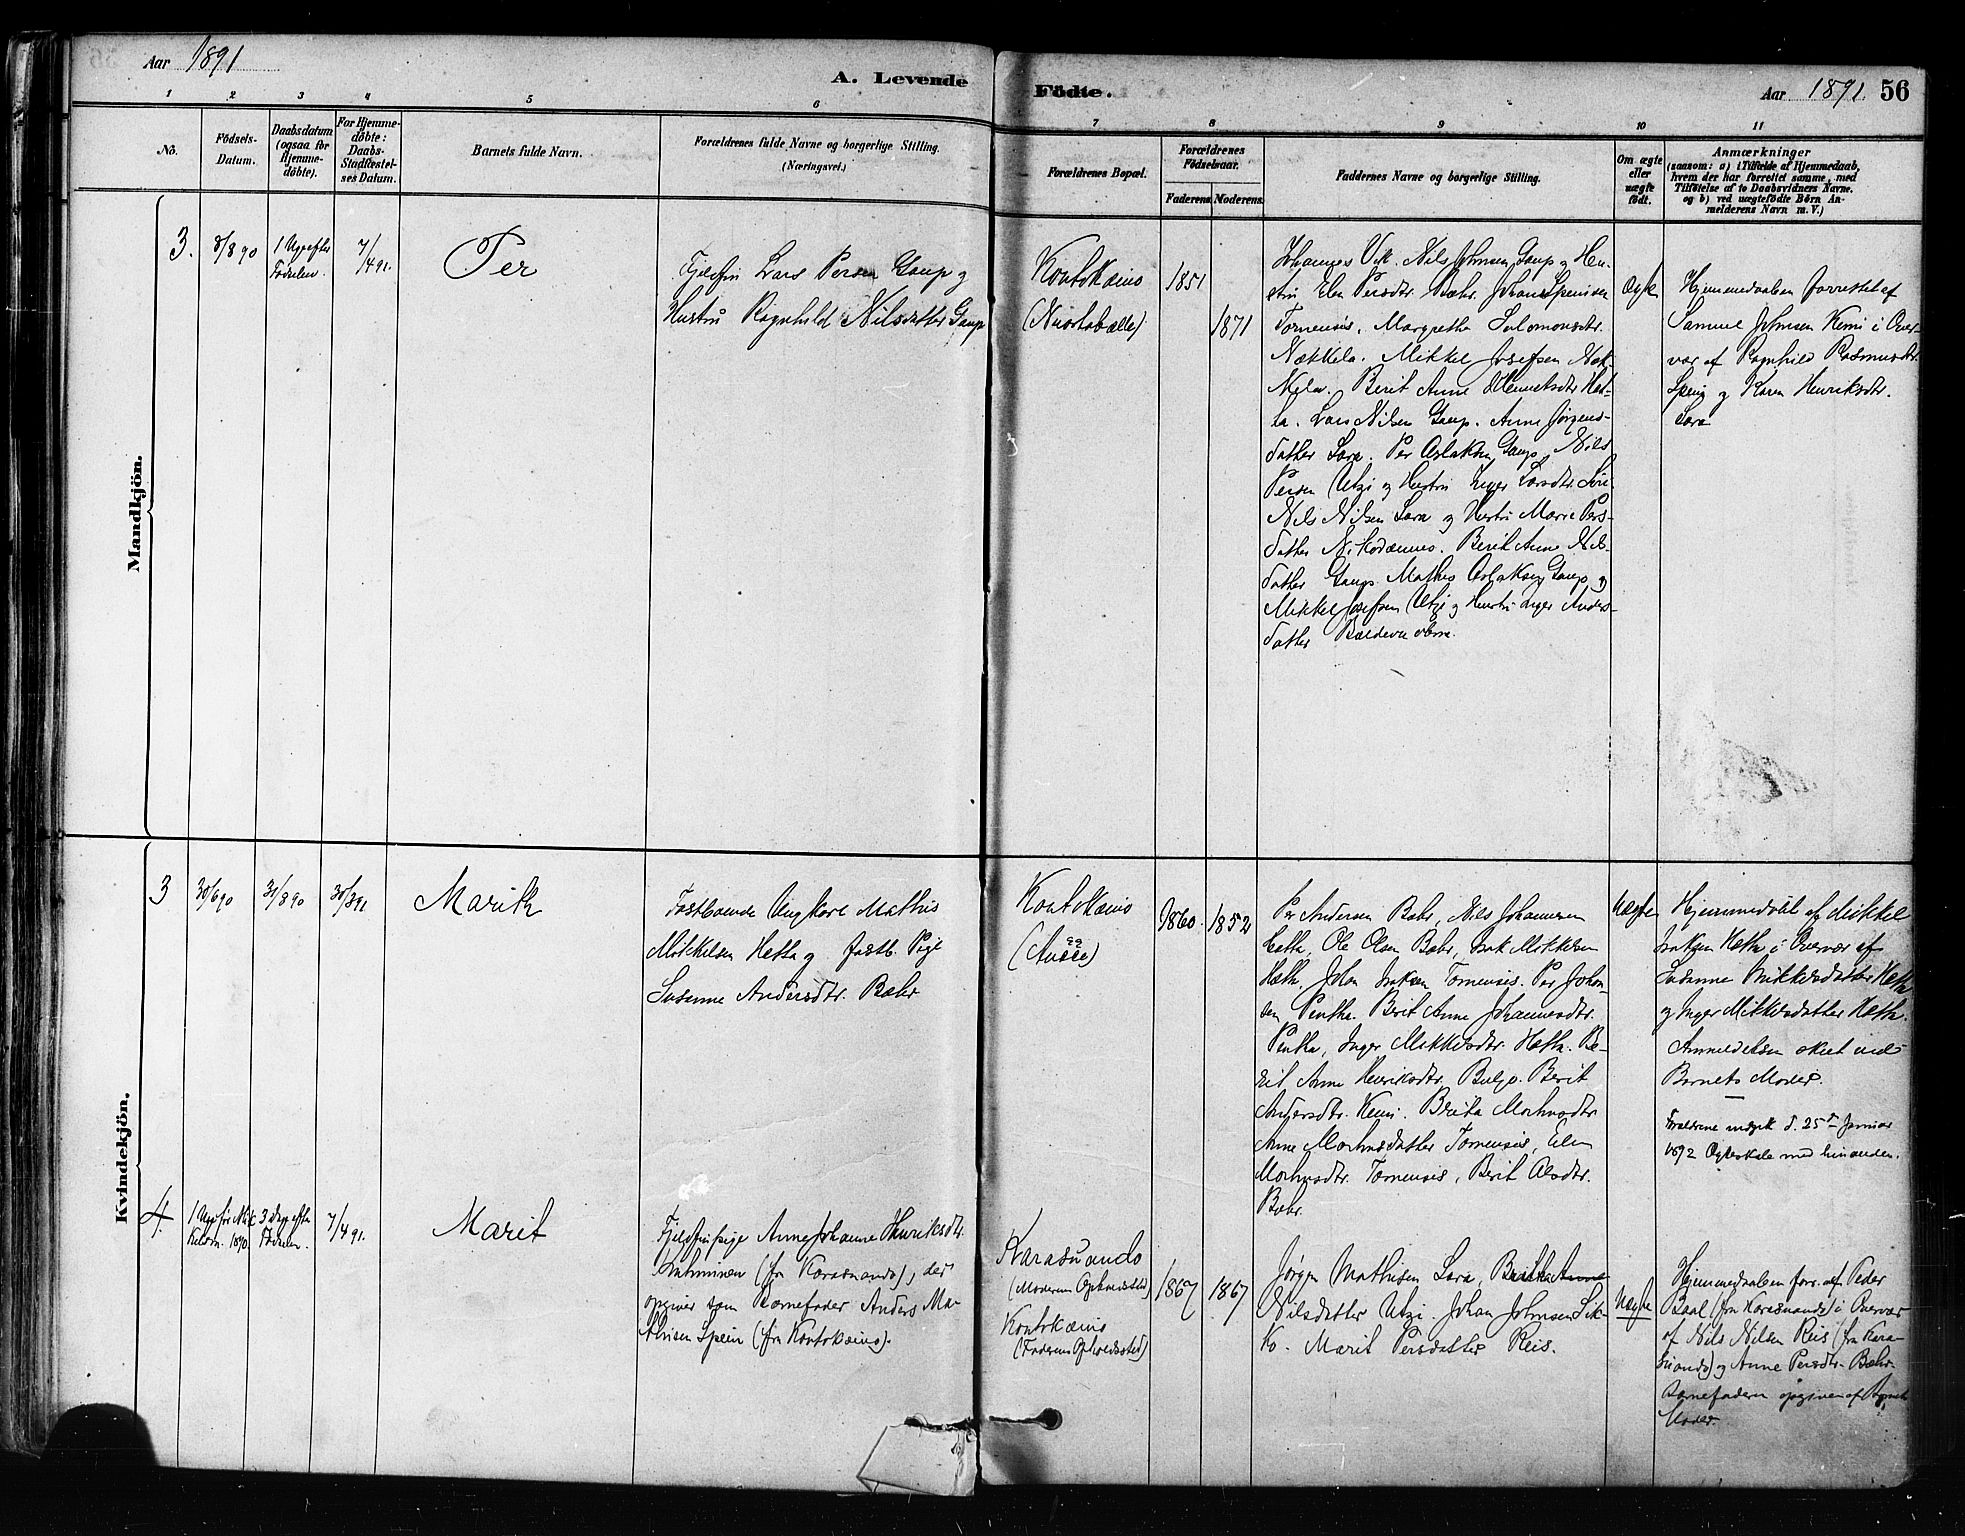 Aar 1891
A. Levende
Födte.
Aar 1891
56
1
2
3
4
5
6
7
8
9
10
11
No.
Födsels-
Datum.
Daabsdatum
(ogsaa for
Hjemme-
döbte).
For Hjemme-
döbte:
Daabs-
Stadfæstel-
ses Datum.
Barnets fulde Navn.
Forældrenes fulde Navne og borgerlige Stilling.
(Næringsvei.)
Forældrenes Bopæl.
Forældrenes
Födselsaar.
Faderens
Moderens
Faddernes Navne og borgerlige Stilling.
Om ægte
eller
uægte
födt.
Anmærkninger
(saasom: a) i Tilfælde af Hjemmedaab,
hvem der har forrettet samme, med
Tilföielse af to Daabsvidners Navne.
og b) ved uægtefödte Börn An-
melderens Navn m. V.)
Mandkjön.
3.
8/8 90
1 Uge efter
Fødselen.
7/4 91.
Per
Fjeldfin Lars Persen Gaup og
Hustru Ragnhild Nilsdatter Gaup
Koutokæino
1851
1871
Johannes Vik. Nils Johnsen Gaup og Hu-
stru Elen Persdtr. Bæhr. Johan
Tornensis, Margretha Salomonsdtr.
Nækkela. Mikkel Josefsen Næk-
kela. Berit Anne Klemetsdtr. Hæt-
ta. Lars Nilsen Gaup. Anne Jørgens-
datter Sara. Per Aslaksen Gaup, Nils
Persen Utzi og Hustru Inger Larsdtr.
Nils Nilsen Sara og Hustru Marie Pers-
datter Nikodemus. Berit Anne Nils-
datter Gaup. Mathis Aslaksen Gaup og
Mikkel Josefsen Utzi og Hustru Inger Anders-
datter
Ægte
Hjemmedaaben forrettet af
Samuel Johnsen Kemi i Over-
vær af Ragnhild Rasmusdtr.
Spein og Karen Henriksdtr.
Sara
Kvindekjön.
3
30/6 90
31/8 90
30/3 91
Marith
Fastboende Ungkarl Mathis
Mikkelsen Hetta og fastb. Pige
Susanne Andersdtr. Bæhr
Koutokæino
1860.
1852
Per Andersen Bæhr, Nils Johannesen
Hætta, Ole Olsen Bæhr, Isak Mikkelsen
Hætta, John Isaksen Tornensis. Per Johan-
sen Pentha. Berit Anne Johannesdtr.
Pentha, Inger Mikkelsdtr. Hætta. Be-
rit Anne Henriksdtr. Buljo. Berit
Andersdtr. Kemi. Brita
Anne Tornensis, Elen
Tornensis, Berit Olsdtr.
Bæhr.
Uægte
Hjemmedøbt af Mikkel
Isaksen Hætta i Overvær af
Susanne Mikkelsdatter Hætta
og Inger Mikkelsdatter Hætta.
Anmeldelsen skeet ved
Barnets Moder.
Forældrene indgik d. 25de Januar
1892 Ægteskab med hinanden.
4.
1 Uge før
1890.
3 Dage efter
Fødselen.
7/4 91.
Marit
Fjeldfinpige Anne Johanne Henriksdtr.
(fra Karasuando), der
opgiver som Barnefader Anders Ma-
thisen Spein (fra Koutokæino).
Karasuando
(Moderens Opholdssted)
Koutokæino
(Faderens Opholdssted)
1867
1867
Jørgen Mathisen Sara, Anne
Nilsdatter Utzi. Johan Johnsen Sik-
ko. Marit Persdatter Reis.
Uægte
Hjemmedaaben forr. af Peder
Baal (fra Karasuando) i Overvær
af Nils Nilsen Reis (fra Kara-
suando) og Anne Persdtr. Bæhr.
Barnefaderen opgiven af Barnets
Moder.